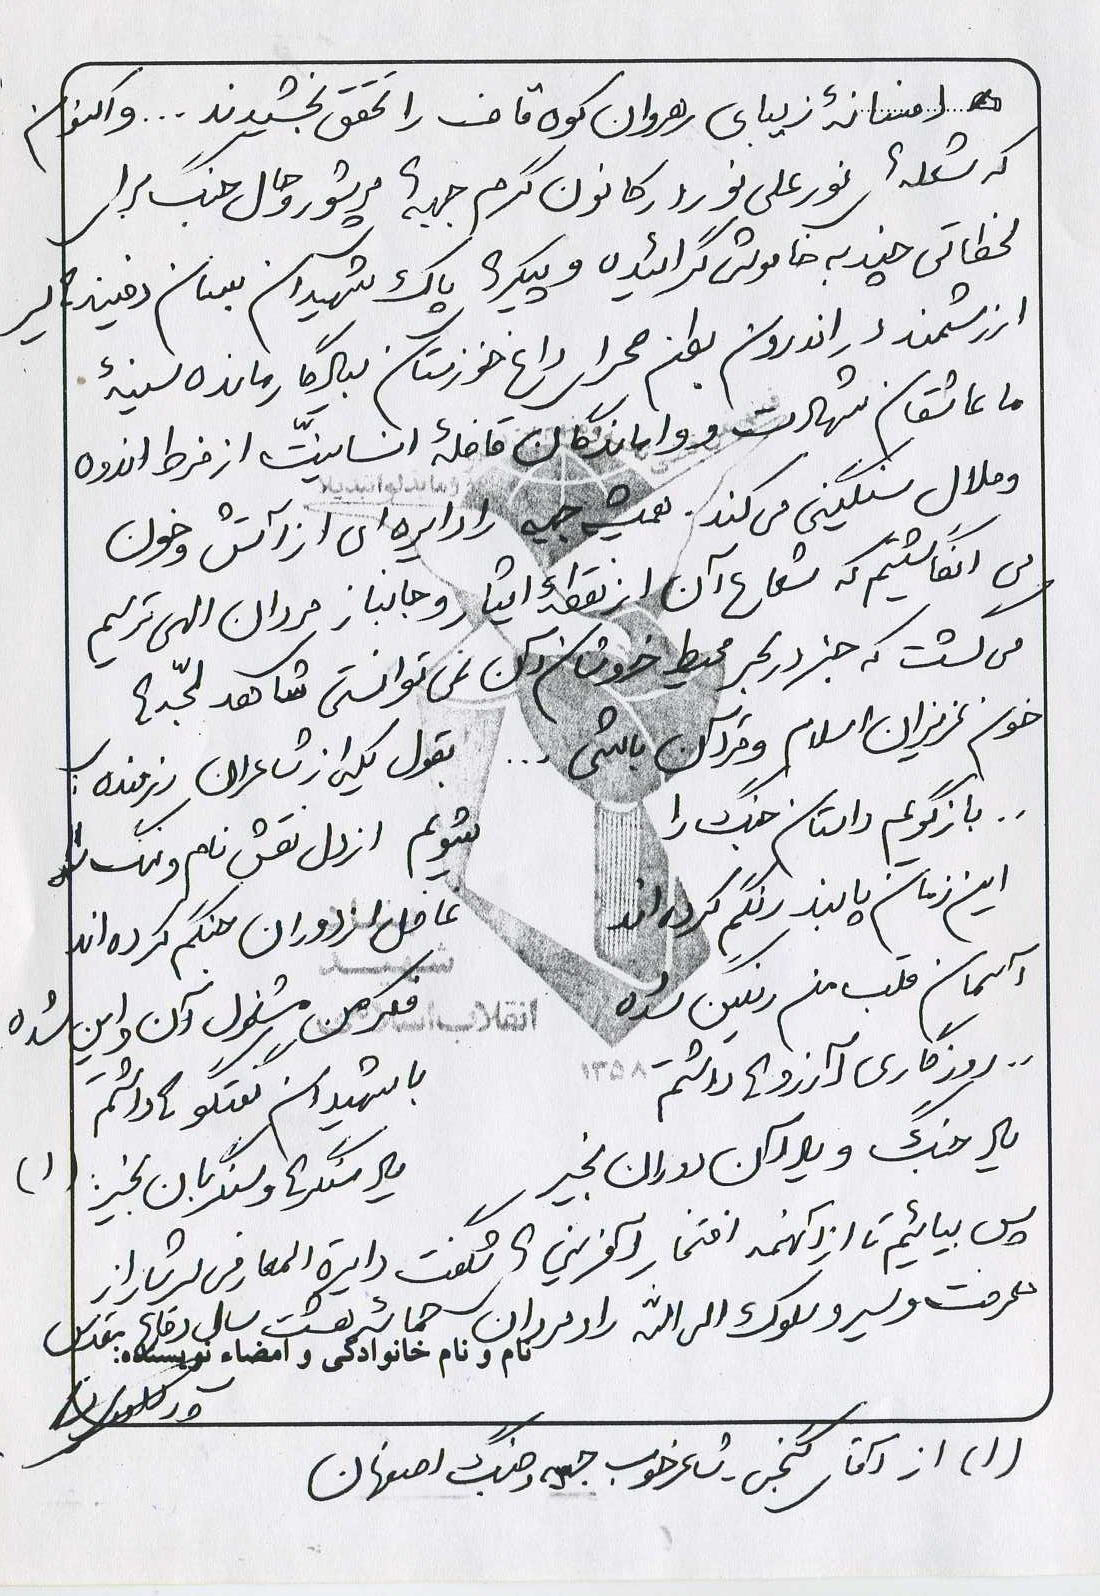 افسانهٔ زیبای رهروان کوه قاف را تحقق بخشیدند ... و اکنون
که شعلهٔ نور علی نور در کانون گرم جبههٔ پر شور و حال جنگ برای
لحظاتی چند به خاموشی گرائیده و پیکرهای پاک شهیدان بسان دفینه‌هایی
ارزشمند در اندرون بطن صحرای داغ خوزستان بیادگار مانده سینهٔ
ما عاشقان شهادت و واماندگان قافلهٔ انسانیّت از فرط اندوه
و ملال سنگینی می کند. همیشه جبهه را دایره ای از آتش و خون
می انگاشتیم که شعاع آن از نقطهٔ ایثار و جانباز مردان الهی ترسیم
می گشت که جز در بحر محیط خروشان آن نمی توانستی شاهد لجّه‌های
خون عزیزان اسلام و قرآن باشی ... بقول یکی از شاعران رزمنده :
.. بازگویم داستان جنگ را بشویم از دل نقش نام و ننگ را
این زمان پابند رنگم کرده اند غافل از دوران جنگم کرده اند
آسمان قلب من رنگین شده فکر من مشغول آن و این شده
.. روزگاری آرزوها داشتم با شهیدان گفتگوها داشتم
یاد جنگ و یاد آن دوران بخیر یاد سنگرها و سنگربان بخیر (۱)
پس بیائیم تا از آنهمه افتخار آفرینی های شگفت دایرة المعارفی سرشار از
معرفت و سیر و سلوک الی الله رادمردان حماسه هشت سال دفاع مقدس
نام و نام خانوادگی و امضاء نویسنده:
(۱) از آقای گنجی شاعر خوب جبهه و جنگ اصفهان
شهید
انقلاب اسلامی
۱۳۵۸